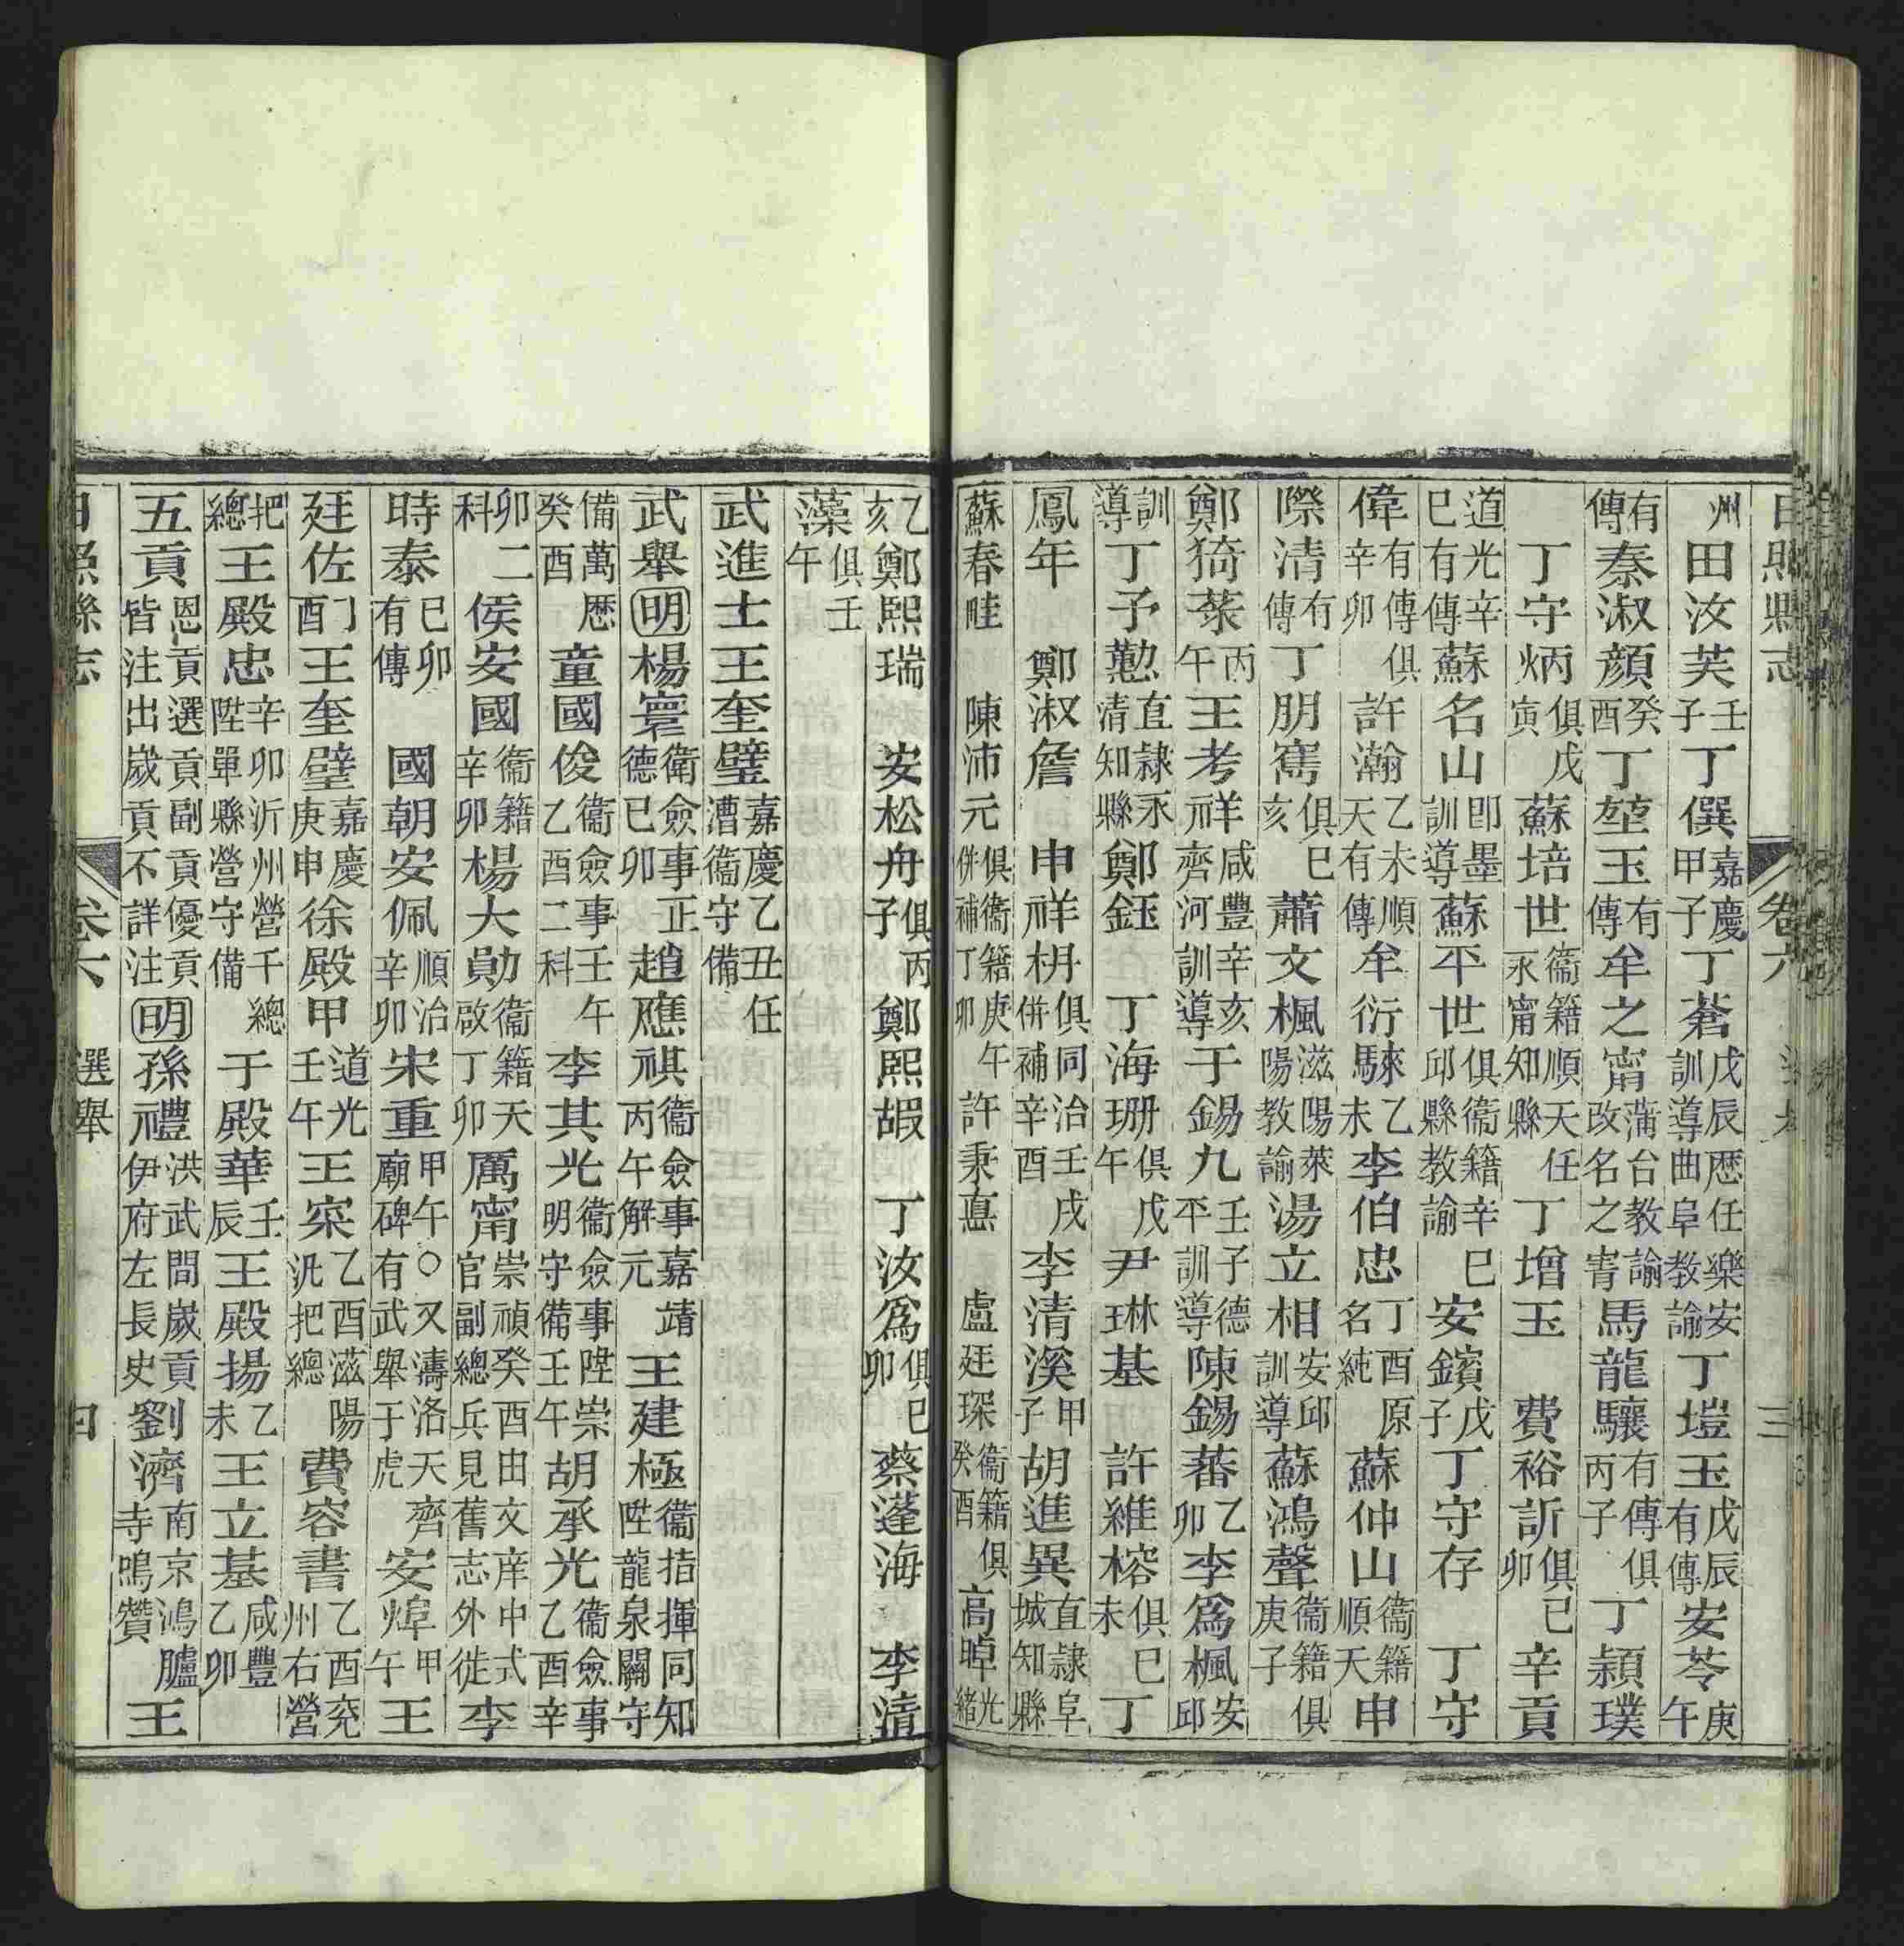 日照縣志　卷六　三
州田汝芙壬子丁僎嘉慶甲子丁蒼戊辰歷任樂安訓導曲阜教諭丁塏玉戊辰有傳安苓庚午
有傳秦淑顔癸酉丁堃玉有傳牟之甯蒲台教諭改名之冑馬龍驤有傳俱丙子丁穎璞
丁守炳俱戊寅蘇培世衞籍順天任永甯知縣丁增玉費裕訢俱己卯辛貢
道光辛巳有傳蘇名山卽墨訓導蘇平世俱衞籍辛巳邱縣教諭安鑌戊子丁守存丁守
偉有傳俱辛卯許瀚乙未順天有傳牟衍騋乙未李伯忠丁酉原名純蘇仲山衞籍順天申
際清有傳丁朋騫俱己亥蕭文楓滋陽萊陽教諭湯立相安邱訓導蘇鴻聲衞籍俱庚子
鄭猗菉丙午王考祥咸豐辛亥齊河訓導于錫九壬子德平訓導陳錫蕃乙卯李爲楓安邱
訓導丁予懃直隸永清知縣鄭鈺丁海珊俱戊午尹琳基許維榕俱己未丁
鳳年鄭淑詹申祥枏俱同治壬戌併補辛酉李清溪甲子胡進異直隸阜城知縣
蘇春畦陳沛元俱衞籍庚午併補丁卯許秉悳盧廷琛衞籍俱癸酉高皞光緒
乙亥鄭熙瑞安松舟俱丙子鄭熙嘏丁汝爲俱己卯蔡蓬海李清
藻俱壬午
武進士王奎璧嘉慶乙丑任漕衞守備
武舉明楊寰衞僉事正德己卯趙應祺衞僉事嘉靖丙午解元王建極衞指揮同知陞龍泉關守
備萬歷癸酉童國俊衞僉事壬午乙酉二科李其光衞僉事陞崇明守備壬午胡承光衞僉事乙酉辛
卯二科侯安國衞籍辛卯楊大勛衞籍天啟丁卯厲甯崇禎癸酉由文庠中式官副總兵見舊志外徙李
時泰己卯有傳國朝安佩順治辛卯宋重甲午〇又濤洛天齊廟碑有武舉于虎安煒甲午王
廷佐丁酉王奎璧嘉慶庚申徐殿甲道光壬午王寀乙酉滋陽汛把總費容書乙酉兗州右營
把總王殿忠辛卯沂州營千總陞單縣營守備于殿華壬辰王殿揚乙未王立基咸豐乙卯
五貢恩貢選貢副貢優貢皆注出嵗貢不詳注明孫禮洪武間嵗貢伊府左長史劉濟南京鴻臚寺鳴贊王
日照縣志　卷六　選舉　四